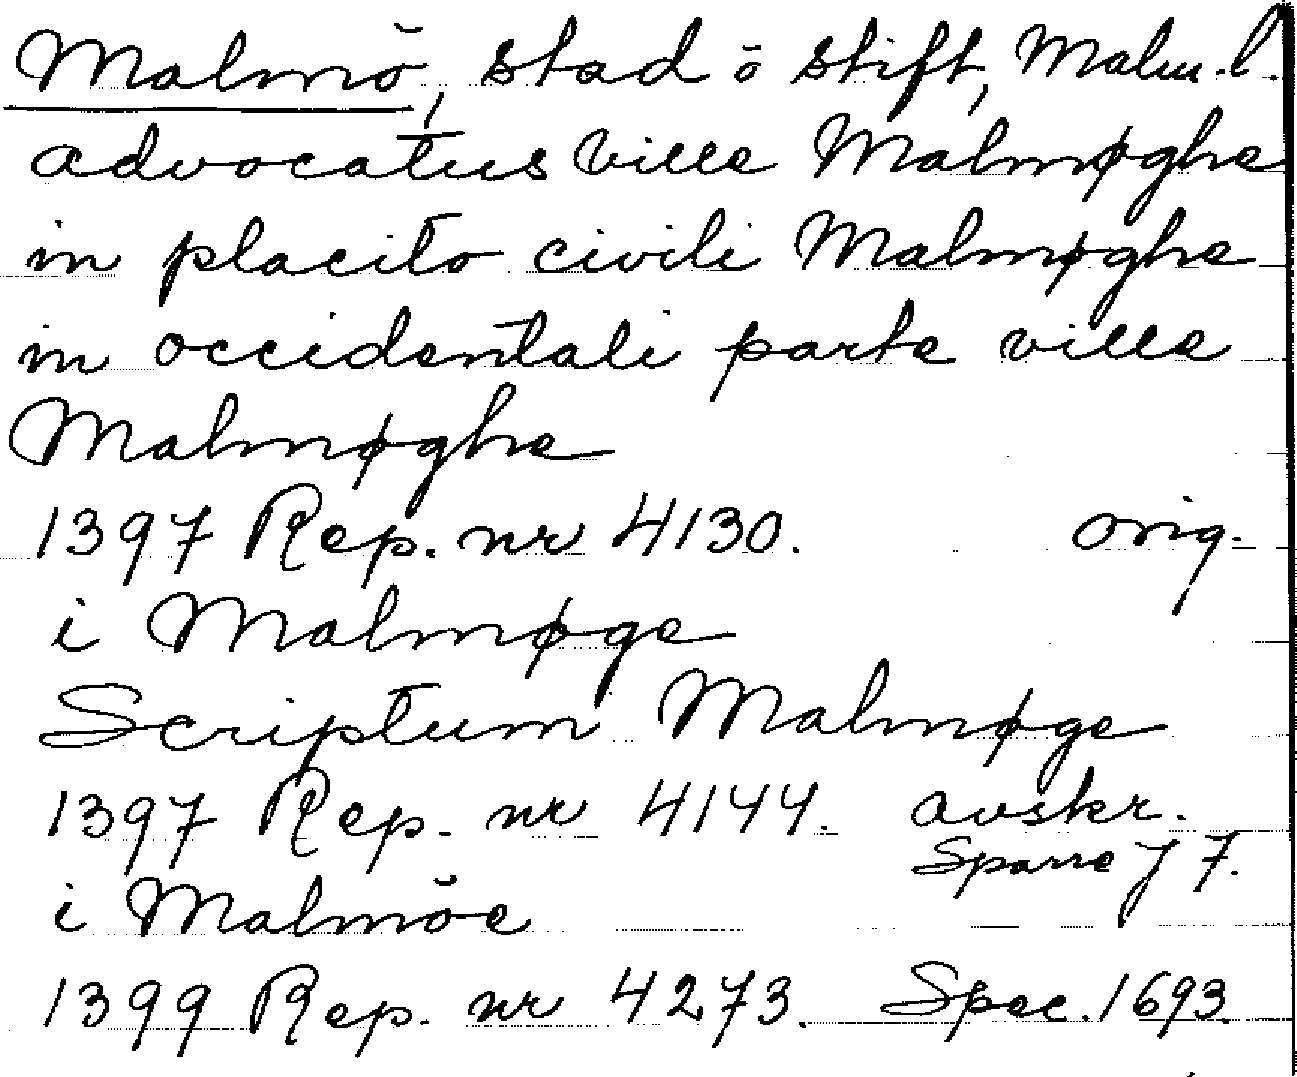 Malmö, stad o stift, Malm. l.
advocatus ville Malmøghe
in placito civili Malmøghe
in occidentali parte ville
Malmøghe
1397 Rep. nr 4130. orig.
i Malmøge
Scriptum Malmøge
1397 Rep. nr 4144. avskr.
Sparre J 7.
i Malmöe
1399 Rep. nr 4273. Spec. 1693.